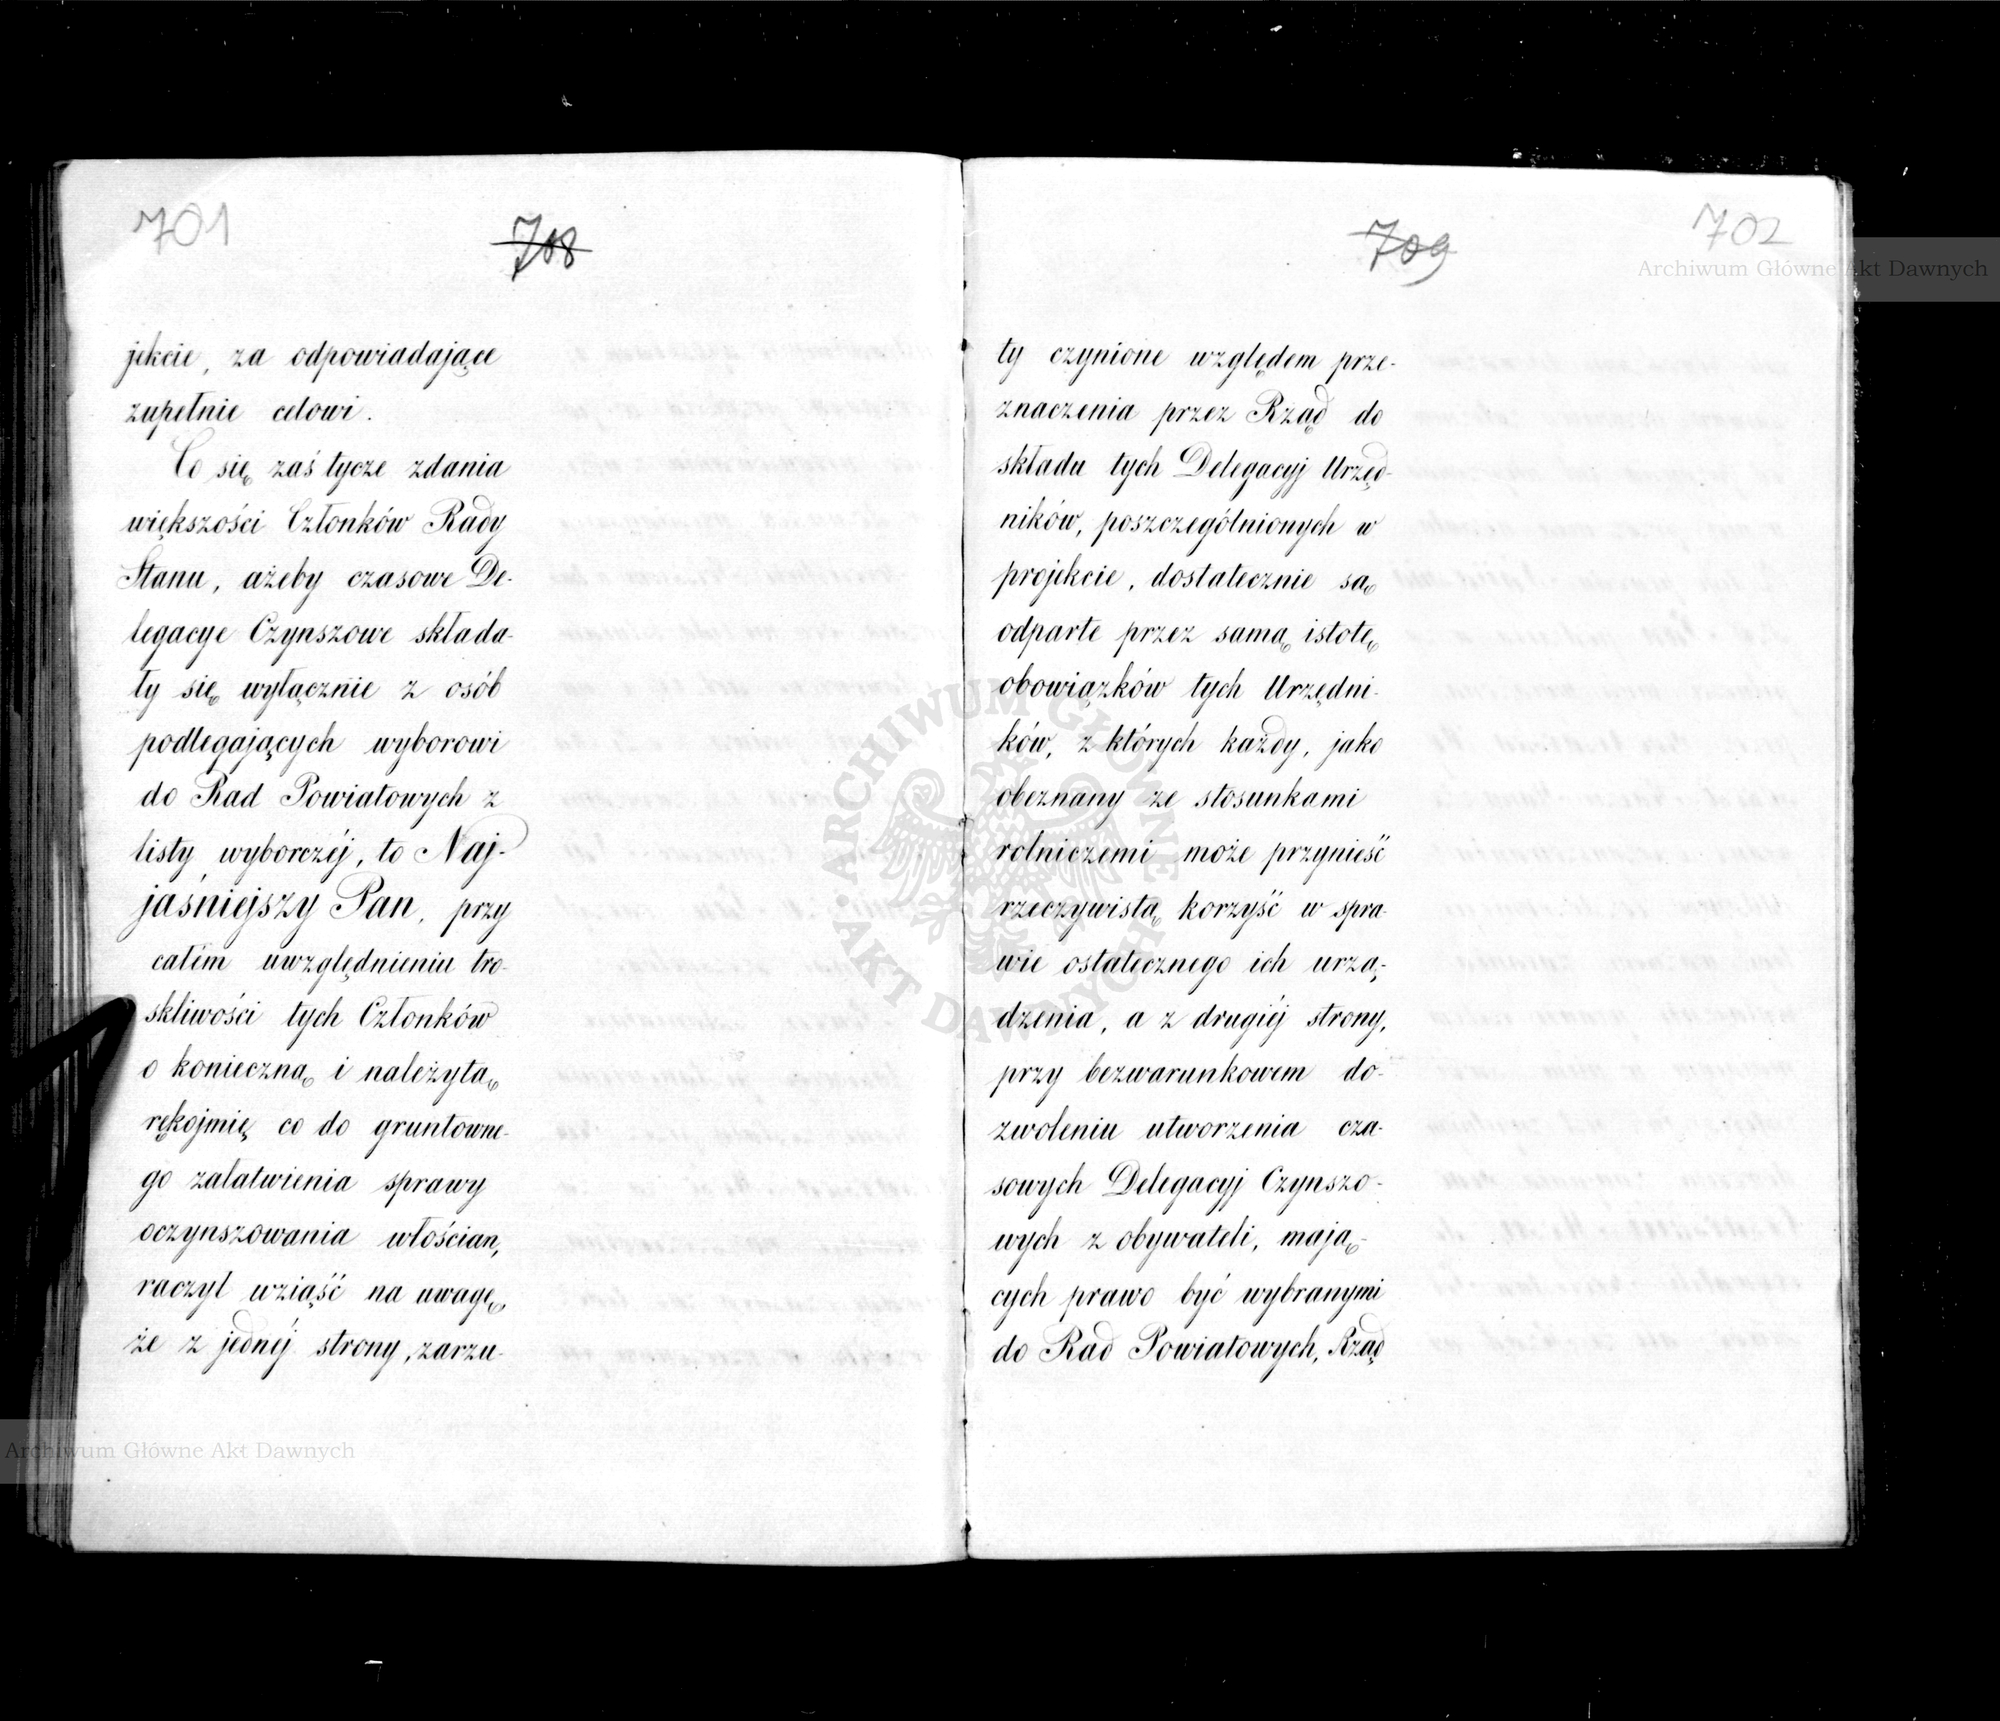 701
708
jekcie, za odpowiadające
zupełnie celowi.
Co się zaś tycze zdania
większości Członków Rady
Stanu, ażeby czasowe De-
legacye Czynszowe składa-
ły się wyłącznie z osób
podlegających wyborowi
do Rad Powiatowych z
listy wyborczéj, to Naj-
jaśniejszy Pan, przy
całém uwzględnieniu tro-
skliwości tych Członków
o konieczną i należytą
rękojmię co do gruntowne-
go załatwienia sprawy
oczynszowania włościan,
raczył wziąść na uwagę,
że z jednéj strony, zarzu-
709
702
ty czynione względem prze-
znaczenia przez Rząd do
składu tych Delegacyj Urzęd-
ników, poszczególnionych w
projekcie, dostatecznie są
odparte przez samą istotę
obowiązków tych Urzędni-
ków, z których każdy, jako
obeznany ze stosunkami
rolniczemi może przynieść
rzeczywistą korzyść w spra-
wie ostatecznego ich urzą-
dzenia, a z drugiéj strony,
przy bezwarunkowem do-
zwoleniu utworzenia cza-
sowych Delegacyj Czynszo-
wych z obywateli, mają-
cych prawo być wybranymi
do Rad Powiatowych, Rząd
Archiwum Główne Akt Dawnych
ARCHIWUM GŁÓWNE AKT DAWNYCH
Archiwum Główne Akt Dawnych